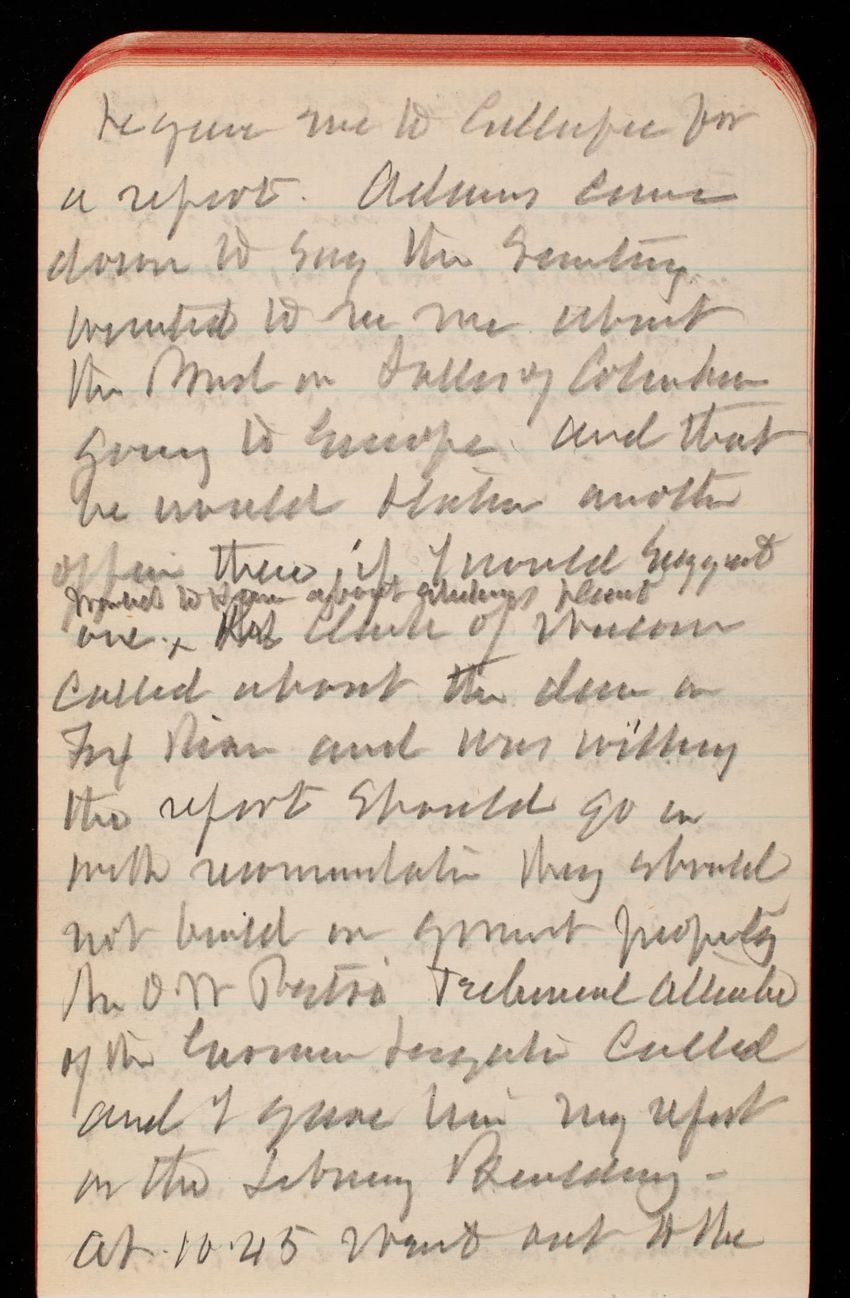 He gave me to Gillespie for
a report. Adams came
down to say the Secretary
wanted to see me about
the Mus on of Columbia
going to Europe and that
he would station another
officer there if I would suggest
wanted to know about plans
one. x Clark of
Called about the dam on
Fox River and was willing
the report should go in
with recommendation they should
not build on government property
Mr O. W. Technical Attache
of the German Legation Called
and I gave him my report
on the Library Building -
at 10.45 went out to the